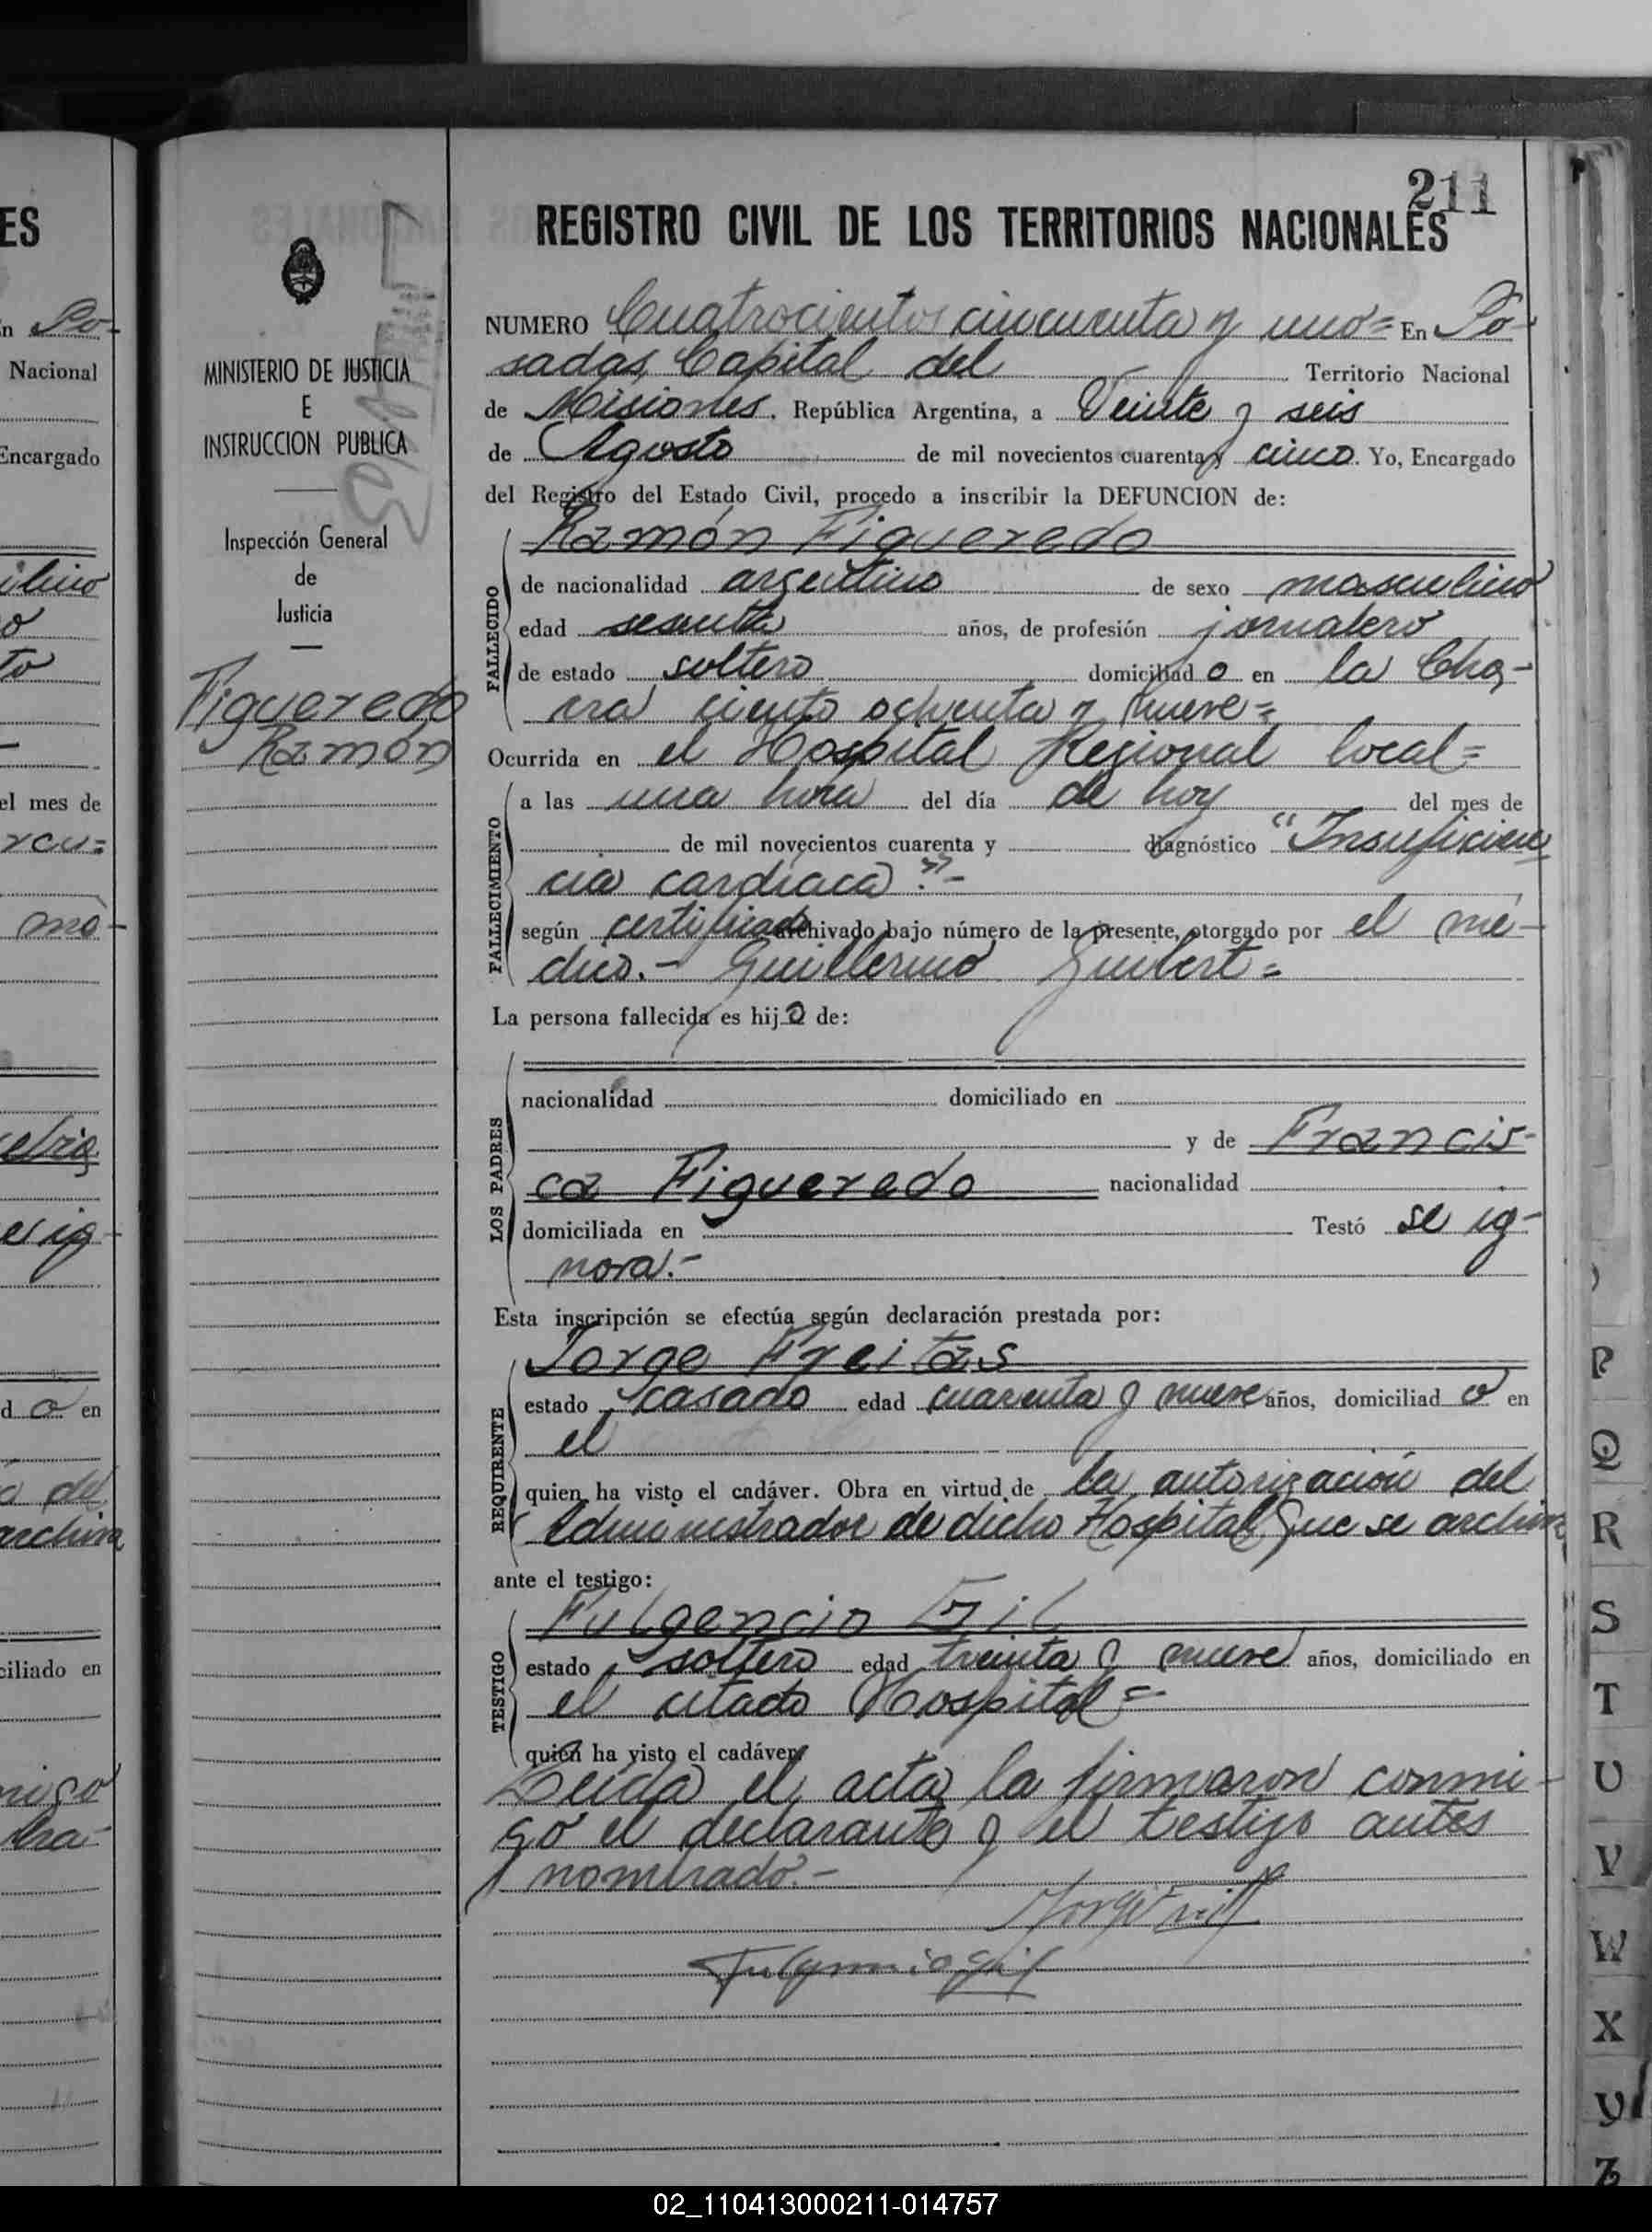 211
REGISTRO CIVIL DE LOS TERRITORIOS NACIONALES
MINISTERIO DE JUSTICIA
E
INSTRUCCION PUBLICA
Inspección General
de
Justicia
Figueredo
Ramón
NUMERO Cuatrocientos cincuenta y uno= En Po-
sadas, Capital del Territorio Nacional
de Misiones, República Argentina, a Veinte y seis
de Agosto de mil novecientos cuarenta y cinco. Yo, Encargado
del Registro del Estado Civil, procedo a inscribir la DEFUNCION de:
Ramón Figueredo
FALLECIDO
de nacionalidad argentino de sexo masculino
edad sesenta años, de profesión jornalero
de estado soltero domiciliado en la Cha-
cra ciento ochenta y nueve=
Ocurrida en el Hospital Regional local=
FALLECIMIENTO
a las una hora del día de hoy del mes de
de mil novecientos cuarenta y diagnóstico "Insuficien
cia cardíaca".-
según certificado archivado bajo número de la presente, otorgado por el mé-
dico.- Guillermo Guibert=
La persona fallecida es hijo de:
LOS PADRES
nacionalidad domiciliado en
y de Francis-
ca Figueredo nacionalidad
domiciliada en Testó se ig-
nora.-
Esta inscripción se efectúa según declaración prestada por:
Jorge Freitas
REQUIRENTE
estado casado edad cuarenta y nueve años, domiciliado en
el
quien ha visto el cadáver. Obra en virtud de la autorización del
Administrador de dicho Hospital, que se archiva
ante el testigo:
Fulgencio Gil
TESTIGO
estado soltero edad treinta y nueve años, domiciliado en
el citado Hospital=
quien ha visto el cadáver.
Leída el acta, la firmaron conmi-
go el declarante y el testigo antes
nombrado.-
Fulgencio Gil
ES
n Po-
Nacional
Encargado
el mes de
mé-
d o en
archiva
ciliado en
P
Q
R
S
T
U
V
W
X
Y
Z
02_110413000211-014757